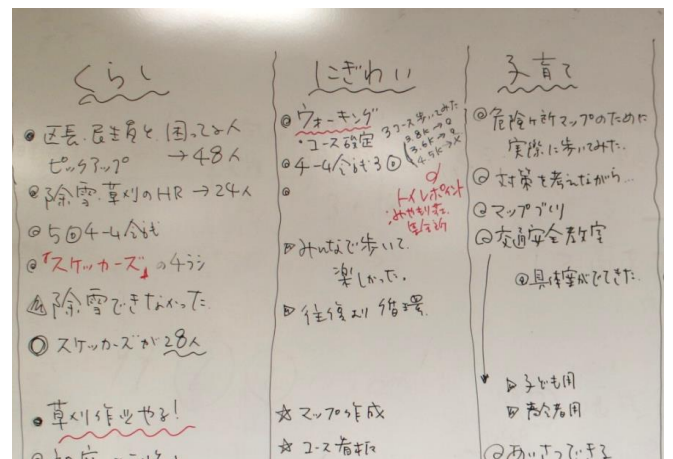 くらし
区長、民生員と、困ってる人
ピックアップ → 48人
除雪、草刈のHR → 24人
5回チーム会議
「スケッカーズ」のチラシ
除雪できなかった
スケッカーズが28人
草刈作业やる!
にぎわい
ウォーキング
・コース確定
3コース歩いてみた
2.8K→○
3.6K→○
4.5K→×
チーム会議3回
トイレポイント
みんなで歩いて、
楽しかった。
往復より循環
☆ マップ作成
☆ コース看板
子育て
危険ヶ所マップのために
実際に歩いてみた。
対策を考えながら…
マップづくり
交通安全教室
具体案がでてきた。
子ども用
高令者用
あいさつできる